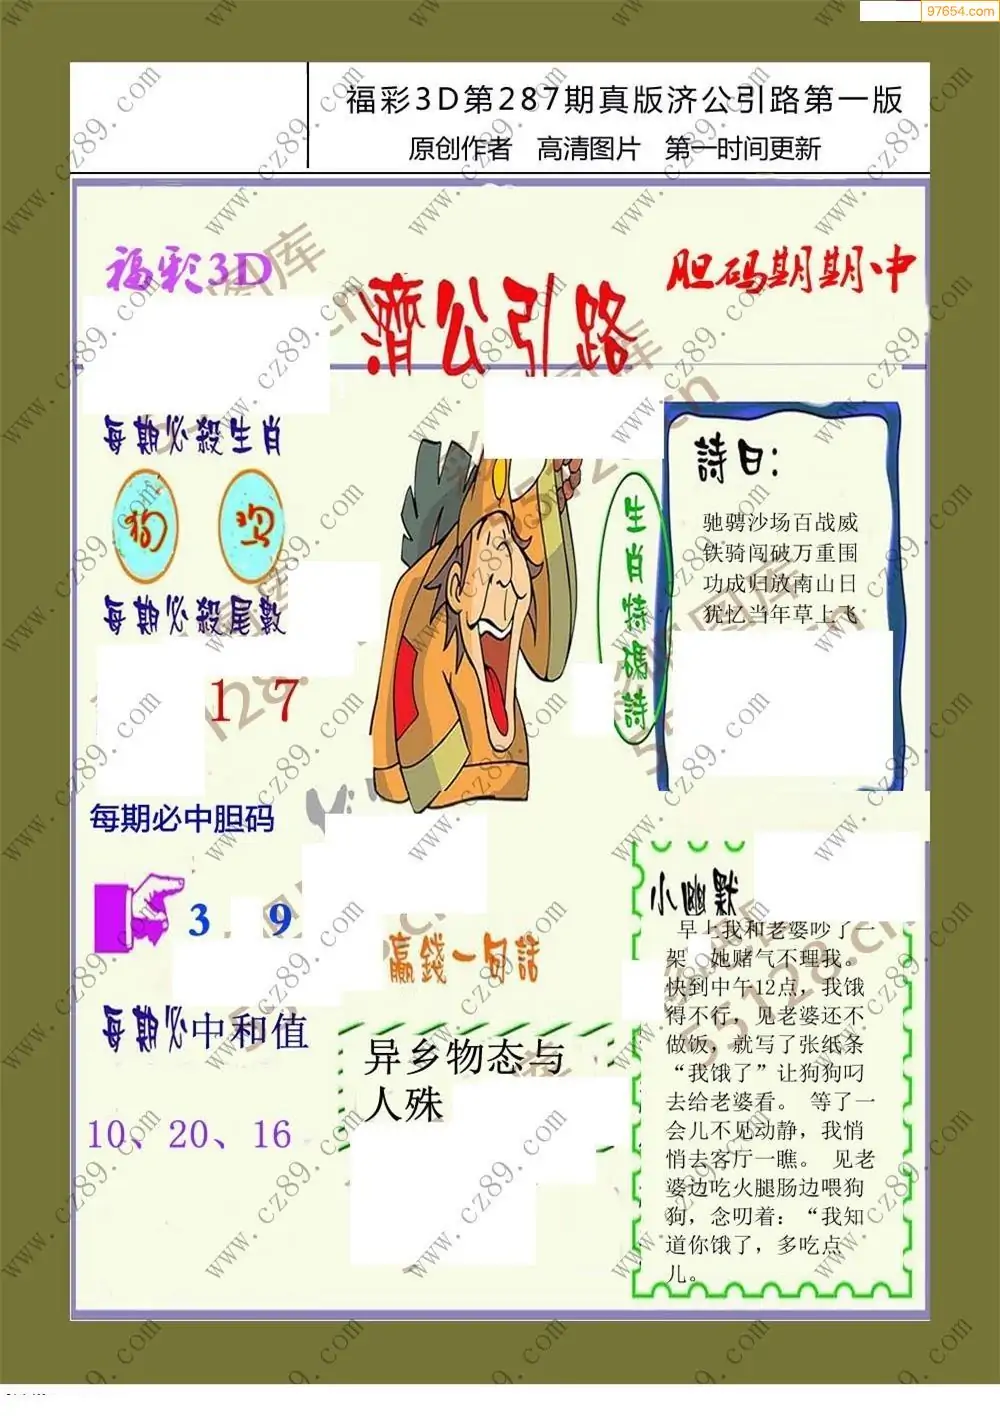 97654.com
福彩3D第287期真版济公引路第一版
原创作者 高清图片 第一时间更新
福彩3D
濟公引路
胆码期期中
每期必殺生肖
狗
每期必殺尾數
1 7
每期必中胆码
3 9
每期必中和值
10、20、16
生肖特碼詩
詩曰:
驰骋沙场百战威
铁骑闯破万重围
功成归放南山日
犹忆当年草上飞
贏錢一句話
异乡物态与
人殊
小幽默
早上我和老婆吵了一
架 她赌气不理我。
快到中午12点，我饿
得不行，见老婆还不
做饭，就写了张纸条
“我饿了”让狗狗叼
去给老婆看。 等了一
会儿不见动静，我悄
悄去客厅一瞧。 见老
婆边吃火腿肠边喂狗
狗，念叨着：“我知
道你饿了，多吃点
儿。
www.cz89.com
55128.cn